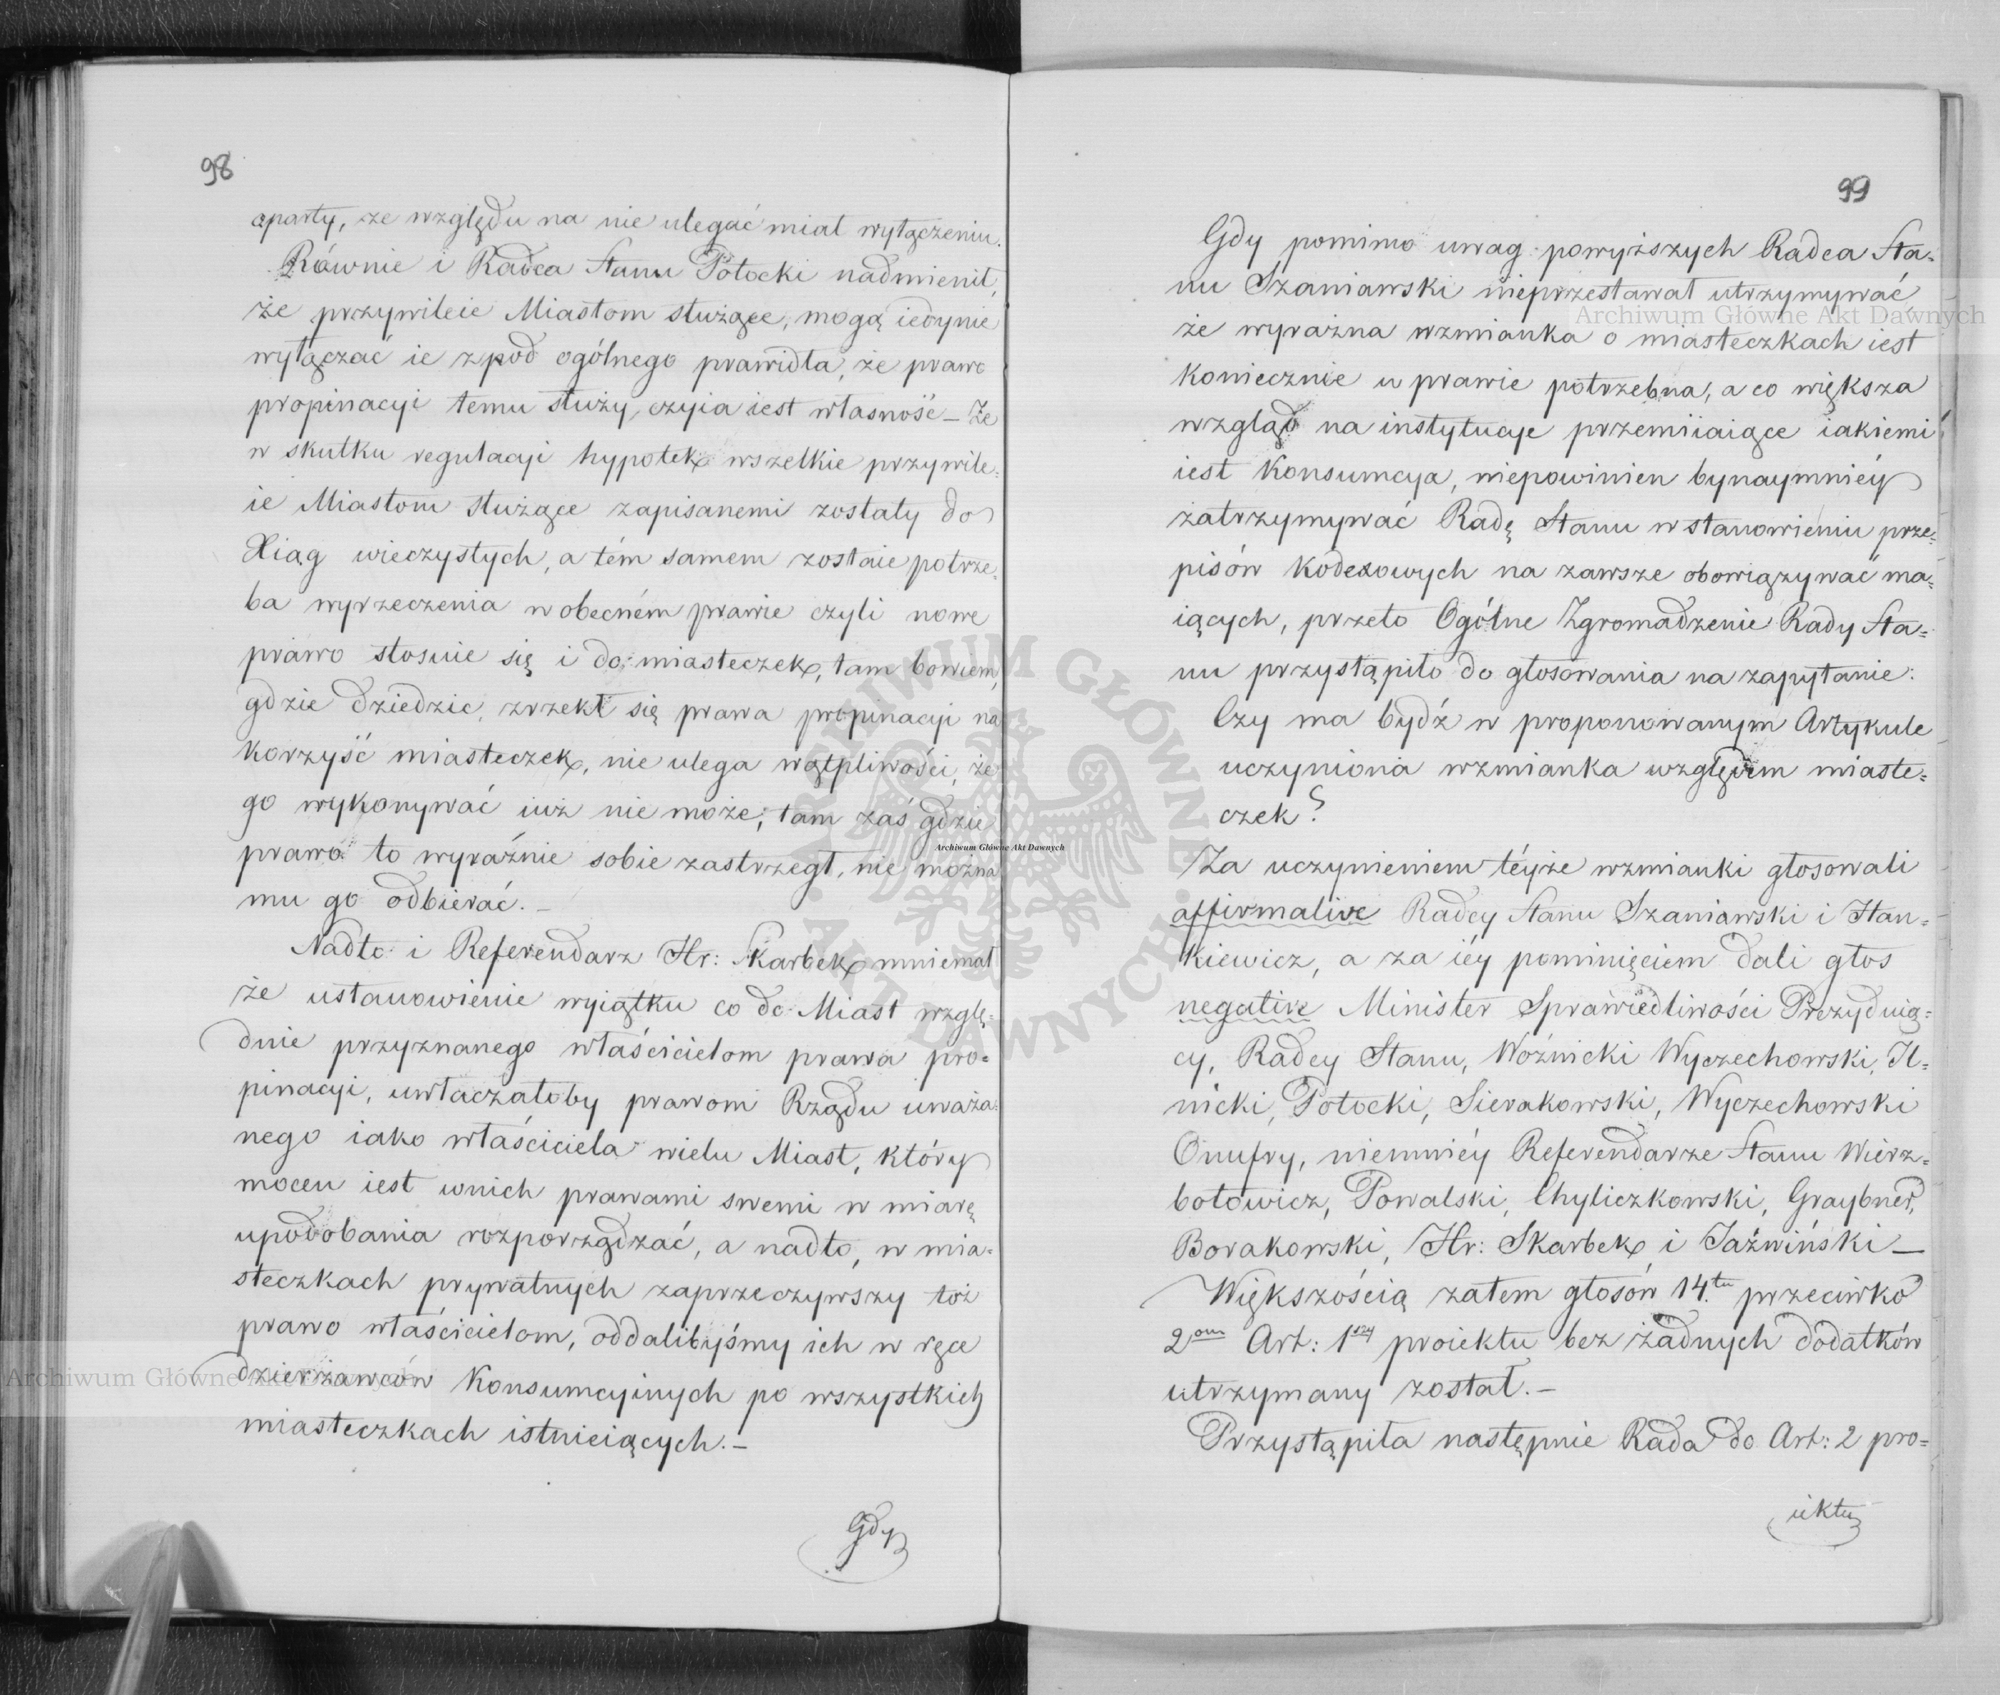 98
oparty, ze względu na nie ulegać miał wyłączeniu.
Równie i Radca Stanu Potocki nadmienił,
że przywileie Miastom służące, mogą iedynie
wyłączać ie zpod ogólnego prawidła, że prawo
propinacyi temu służy, czyia iest własność – Że
w skutku regulacyi hypotek wszelkie przywile=
ie Miastom służące zapisanemi zostały do
Xiąg wieczystych, a tém samem zostaie potrze=
ba wyrzeczenia w obecném prawie czyli nowe
prawo stosuie się i do miasteczek, tam bowiem,
gdzie dziedzic, zrzekł się prawa propinacyi na
korzyść miasteczek, nie ulega wątpliwości, że
go wykonywać iuż nie może; tam zaś gdzie
prawo to wyraźnie sobie zastrzegł, nie można
mu go odbierać. –
Nadto i Referendarz Hr: Skarbek mniemał
że ustanowienie wyiątku co do Miast wzglę=
dnie przyznanego właścicielom prawa pro=
pinacyi, uwłaczałoby prawom Rządu uważa=
nego iako właściciela wielu Miast, który
mocen iest wnich prawami swemi w miarę
upodobania rozporządzać, a nadto, w mia=
steczkach prywatnych zaprzeczywszy toż
prawo właścicielom, oddalibyśmy ich w ręce
dzierżawców Konsumcyinych po wszystkich
miasteczkach istnieiących. –
Gdy
99
Gdy pomimo uwag powyższych Radca Sta=
nu Szaniawski nieprzestawał utrzymywać,
że wyraźna wzmianka o miasteczkach iest
koniecznie w prawie potrzebna, a co większa
wzgląd na instytucye przemiiaiące iakiemi
iest Konsumcya, niepowinien bynaymniéy
zatrzymywać Radę Stanu w stanowieniu prze=
pisów Kodexowych na zawsze obowiązywać ma=
iących, przeto Ogólne Zgromadzenie Rady Sta=
nu przystąpiło do głosowania na zapytanie:
Czy ma bydź w proponowanym Artykule
uczyniona wzmianka względem miaste=
czek?
Za uczynieniem téyże wzmianki głosowali
affirmative Radcy Stanu Szaniawski i Stan=
kiewicz, a za iéy pominięciem dali głos
negative Minister Sprawiedliwości Prezyduią=
cy, Radcy Stanu, Woźnicki Wyczechowski, Il=
nicki, Potocki, Sierakowski, Wyczechowski
Onufry, niemniéy Referendarze Stanu Wierz=
bołowicz, Powalski, Chyliczkowski, Graybner,
Borakowski, Hr: Skarbek i Jaźwiński –
Większością zatem głosów 14.tu przeciwko
2om Art: 1szy proiektu bez żadnych dodatków
utrzymany został. –
Przystąpiła następnie Rada do Art: 2 pro=
iektu
Archiwum Główne Akt Dawnych
Archiwum Główne Akt Dawnych
Archiwum Główne Akt Dawnych
ARCHIWUM GŁÓWNE AKT DAWNYCH